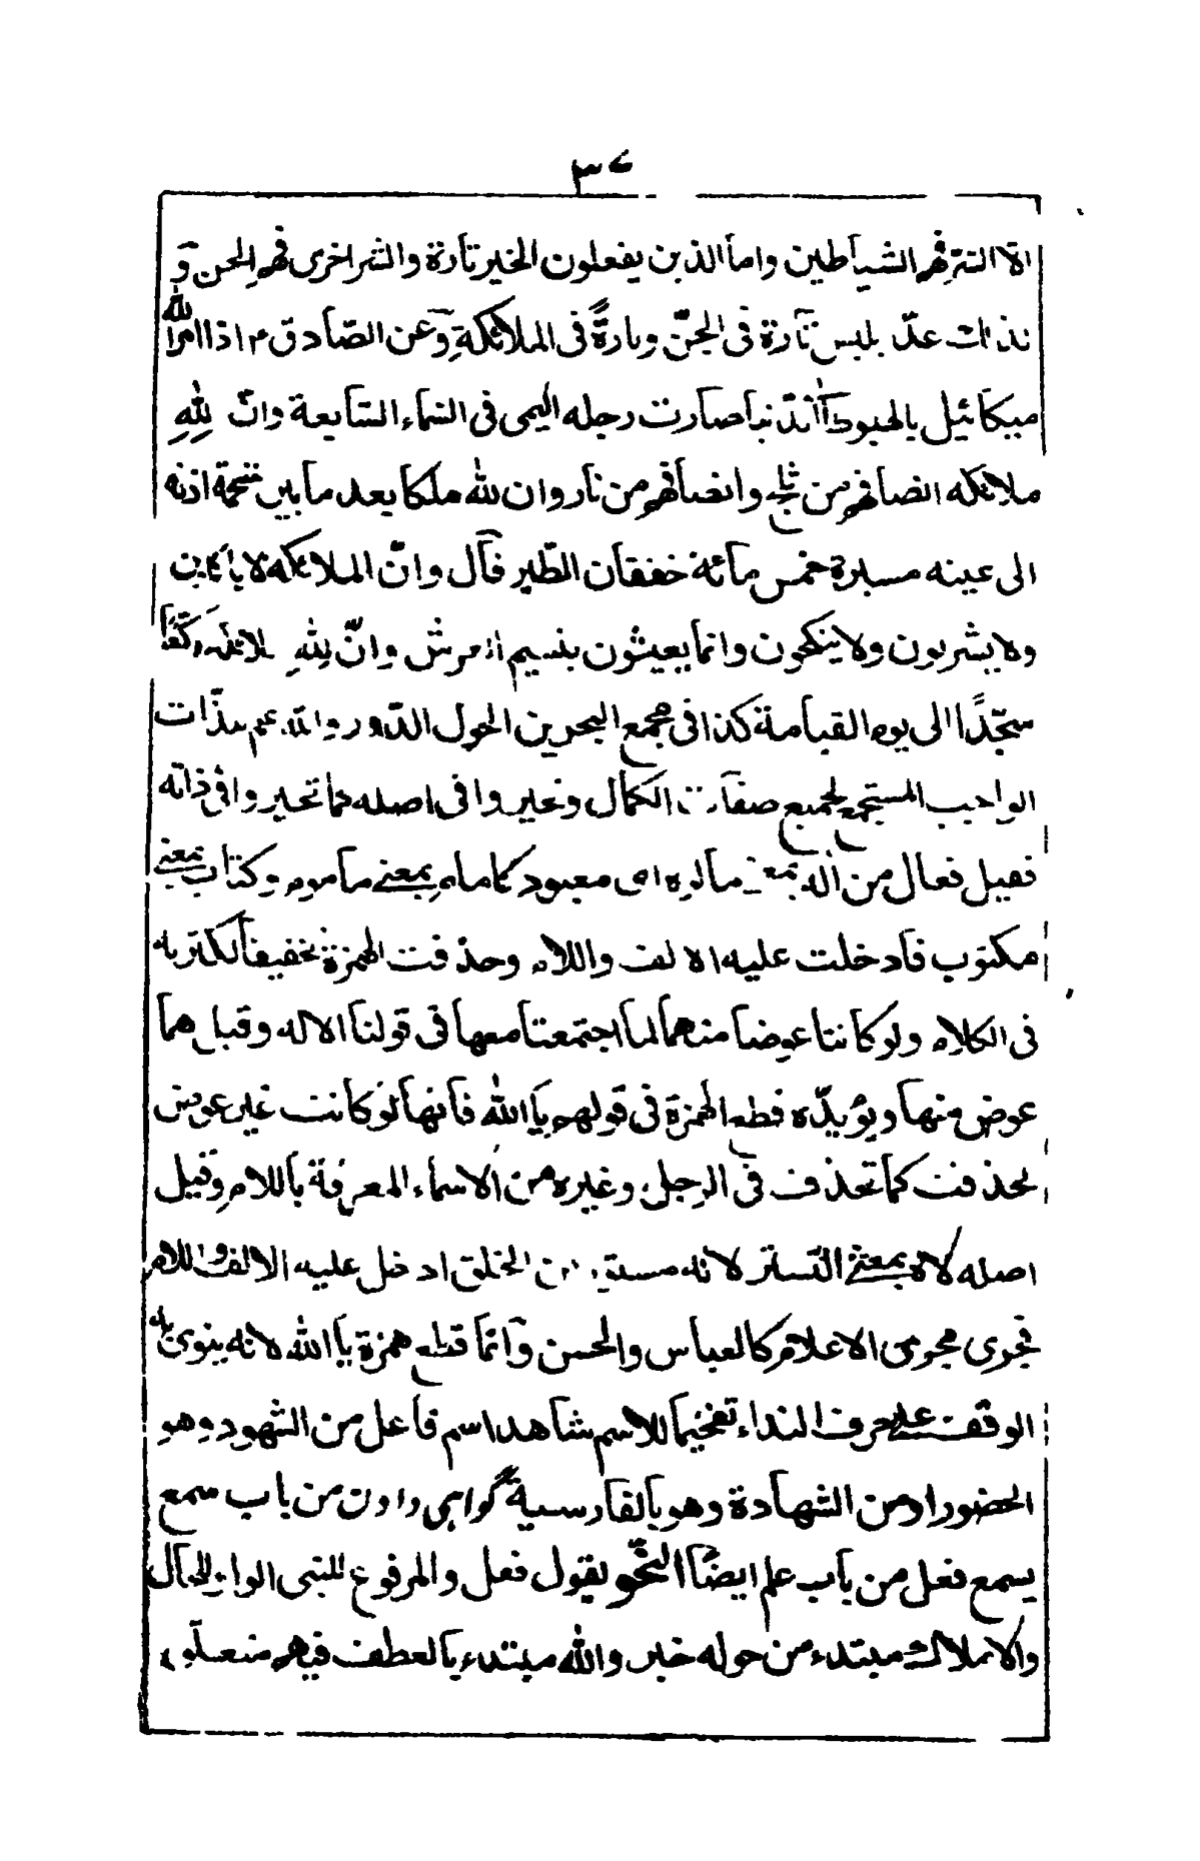 ٣٧
الا الشر فهم الشياطين واما الذين يفعلون الخير تارة والشر اخرى فهم الجن و
عدّ تارة فى الجنّ وتارةً فى الملائكةِ وعن الصّادق م اذا امر الله
ميكائيل بالهبوط صارت رجله اليمنى فى السّماء السّابعة وانّ لِلّٰهِ
ملائكه انصافهم من ثلج وانصافهم من نار وان لله ملكا بعد ما بين شحمة اذنه
الى عينه مسيرة خمس مائة خفقان الطّير قال وانّ الملائكه لا يأكلون
ولا يشربون ولا ينكحون وانما يعيشون بنسيم العرش وانّ لِلّٰهِ ملائكه ركّعًا
سجّدًا الى يوم القيامة كذا فى مجمع البحرين الحول الدّور والله علم لذات
الواجب المستجمع لجميع صفات الكمال وتحيروا فى اصله كما تحيروا فى ذاته
فقيل فعال من اله بمعنے مالوه اى معبود كامام بمعنے ماموم وكتاب بمعنے
مكتوب فادخلت عليه الالف واللام وحذفت الهمزة تخفيفا لكثرته
فى الكلام ولو كانتا عوضا منهما لما اجتمعتا معها فى قولنا الاله وقيل هما
عوض منها ويؤيدّه قطع الهمزة فى قولهم يا الله فانها لو كانت غير عوض
لحذفت كما تحذف فى الرجل وغيره من الاسماء المعرفة باللام وقيل
اصله لاه بمعنے التستر لانه مستتر من الخلق ادخل عليه الالف واللام
فجرى مجرى الاعلام كالعباس والحسن وانما قطع همزة يا الله لانه ينوى به
الوقف على حرف النداء تفخيما للاسم شاهد اسم فاعل من الشهود وهو
الحضور او من الشهادة وهو بالفارسية گواہى دادن من باب سمع
يسمع فعل من باب علم ايضًا النّحو يقول فعل والمرفوع للنبى الواو للحال
والاملاك مبتدء من حوله خبر والله مبتدء بالعطف فيهم متعلق